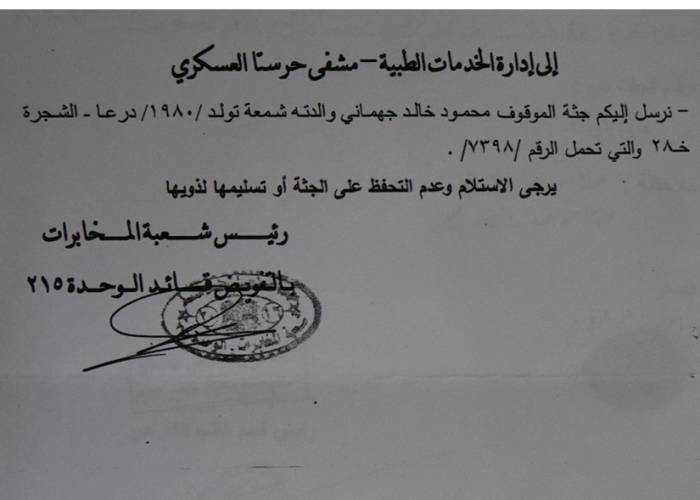 إلى إدارة الخدمات الطبية – مشفى حرستا العسكري
– نرسل إليكم جثة الموقوف محمود خالد جهماني والدته شمعة تولد /١٩٨٠/ درعا - الشجرة
خـ٢٨ والتي تحمل الرقم /٧٣٩٨/ .
يرجى الاستلام وعدم التحفظ على الجثة أو تسليمها لذويها
رئيس شعبة المخابرات
بالتفويض قائد الوحدة ٢١٥